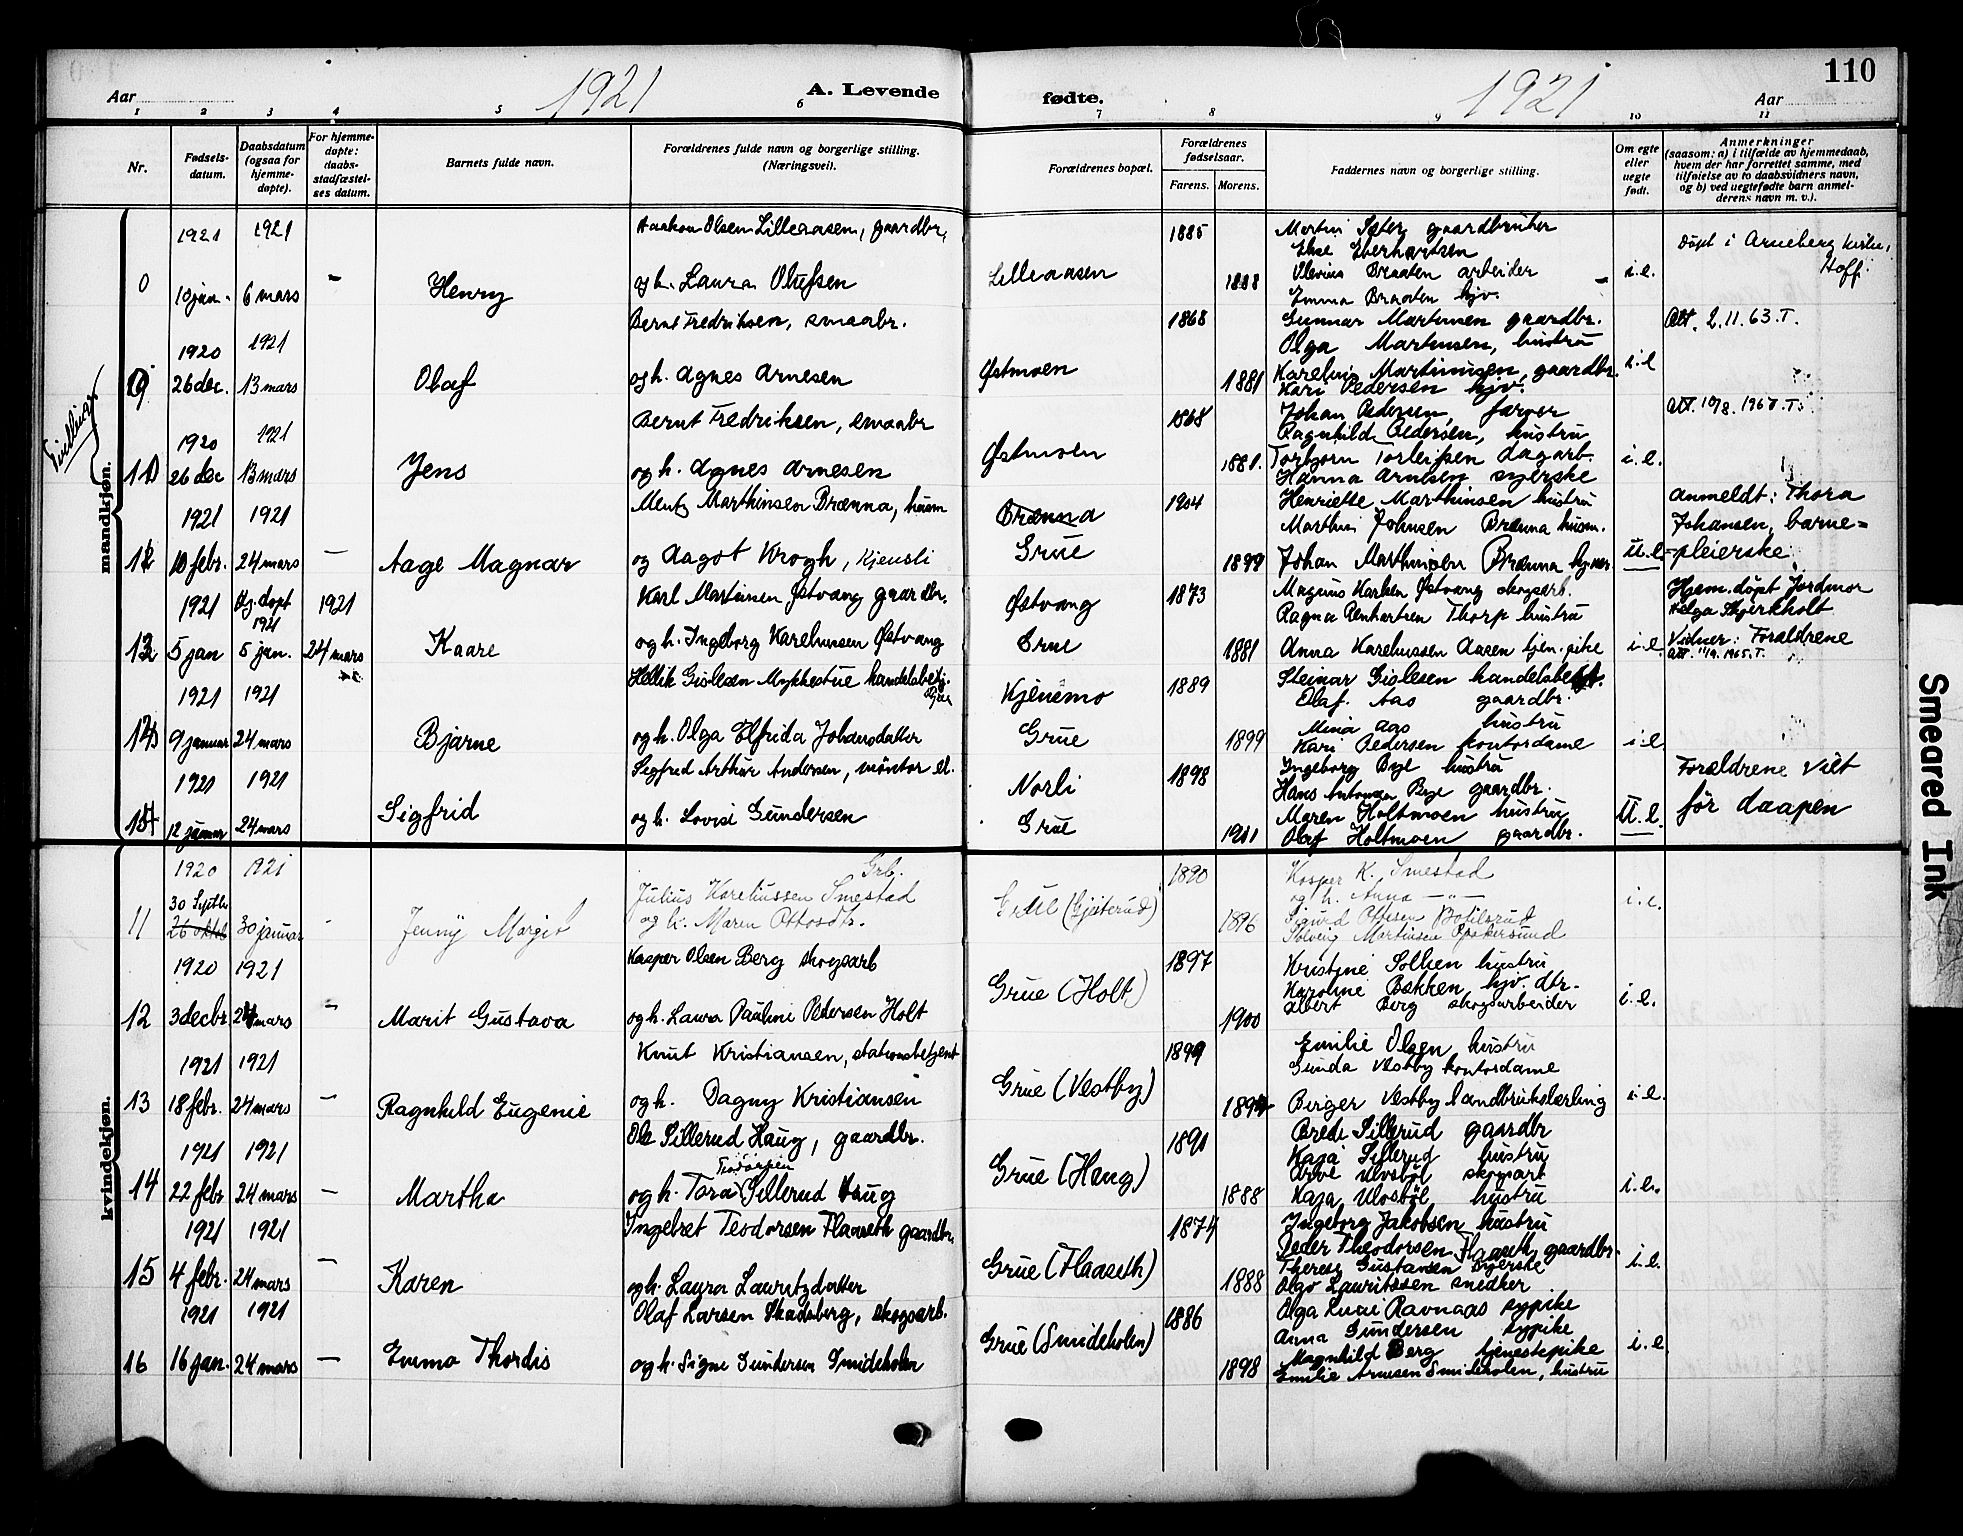 110
Aar 1921 A. Levende fødte. 1921 Aar
1 2 3 4 5 6 7 8 9 10 11
Nr.
Fødsels-
datum.
Daabsdatum
(ogsaa for
hjemme-
døpte).
For hjemme-
døpte:
daabs-
stadfæstel-
ses datum.
Barnets fulde navn.
Forældrenes fulde navn og borgerlige stilling.
(Næringsvei).
Forældrenes bopæl.
Forældrenes
fødselsaar.
Farens. Morens.
Faddernes navn og borgerlige stilling.
Om egte
eller
uegte
født.
Anmerkninger
(saasom: a) i tilfælde av hjemmedaab,
hvem der har forrettet samme, med
tilføielse av to daabsvidners navn,
og b) ved uegtefødte barn anmel-
derens navn m. v.).
mandkjøn.
1921 1921 Haakon Olsen Lilleaasen, gaardbr. 1885 Martin Sæter gaardbruker
Else Eberhartsen
Døpt i Arneberg kirke,
Hoff.
0 10 jan. 6 mars – Henry og h. Laura Olufsen Lilleaasen 1888 Olevius Braaten arbeider i.e.
Emma Braaten hjv.
1920 1921 Bernt Fredriksen, smaabr. 1868 Gunnar Martinsen gaardbr. Att. 2.11.63.T.
Olga Martinsen, hustru
26 dec. 13 mars Olaf og h. Agnes Arnesen Østmoen 1881 Karelius Martinusen, gaardbr. i.e
Kari Pedersen hjv.
Tvillinger
1920 1921 Bernt Fredriksen, smaabr 1868 Johan Pedersen, farver
Ragnhild Pedersen, hustru
11 26 dec 13 mars Jens og h. Agnes Arnesen Østmoen 1881. Torbjørn Torleifsen dagarb. i.e.
Hanna Arnesen syerske
1921 1921 Mentz Marthinsen Brænna, husm Brænna 1904 Henriette Marthinsen hustru
Marthin Johnsen Brænna husm.
Anmeldt: Thora
Johansen, barne=
=pleierske
12 10 febr. 24 mars – Aage Magnar og Aagot Krogh, Kjensli Grue 1899 Johan Marthinsen Brænna u.e.
1921 Hj. døpt 1921 1921 Karl Martinsen Østvang gaardbr. Østvang 1873 Magnus Karlsen Østvang skogsarb.
Ragna Renhartsen Thorp hustru
Hjem.døpt Jordmor
Helga Skjerkholt
13 5 jan 5 jan. 24 mars Kaare og h. Ingeborg Karelinusen Østvang Grue 1881 Anna Karelinussen Aasen tjen. pike i.e.
Vidner: Forældrene
Att. 11/9. 1965.T.
1921 1921 Hellik Gislesen Mykkestue handelsbetj. Kjenemo 1889 Steinar Gislesen handelsbetj.
Olaf Aas gaardbr.
Mina Aas hustru
14 9 januar 24 mars Bjarne og h. Olga Elfrida Johansdatter Grue 1899 Kari Pedersen kontordame i.e
1921 1921 Sigfred Arthur Andersen, montør el. Norli 1898 Ingeborg Bye hustru
Hans Antonsen Bye gaardbr.
Forældrene viet
før daapen
15 12 januar 24 mars Sigfrid og h. Lovise Gundersen Grue 1901 Maren Holtmoen hustru u.e.
Olaf Holtmoen gaardbr.
kvindekjøn.
1920 1921 Grb.
Julius Karelinussen Smestad 1890 Kasper K. Smestad
og h. Anna –"–
11 30 Septbr 26 oktob 30 januar - Jenny Margit og h. Maren Ottosdtr. Grue (Gjeiterud) 1896 Sigurd Ottesen Botilsrud i.e.
Solveig Martinsen
1920 1921 Kasper Olsen Berg skogsarb 1897 Kristine Sollien hustru
Karoline Bakken, hjv. dtr.
12 3 decbr 24 mars – Marit Gustava og h. Laura Pauline Pedersen Holt Grue (Holt) 1900 Albert Berg skogsarbeider i.e.
1921 1921 Knut Kristiansen, stationsbetjent 1899 Emilie Olsen hustru
Gunda Vestby kontordame
13 18 febr. 24 mars – Ragnhild Eugenie og h. Dagny Kristiansen Grue (Vestby) Birger Vestby landbrukslærling i.e.
1921 1921 Ole Sillerud Haug, gaardbr. 1891 Brede Sillerud gaardbr
Kaja Sillerud hustru
14 22 febr 24 mars – Martha og h. Tora Sillerud Haug Grue (Haug) 1888 Arve Ulvsbøl skogsarb i.e.
Kaja Ulvsbøl hustru
1921 1921 Ingebret Teodorsen Flaaseth gaardbr. 1874 Ingeborg Jakobsen hustru
Peder Theodorsen Flaaseth, gaardbr.
15 4 febr. 24 mars – Karen og h. Laura Lauritzdatter Grue (Flaaseth) 1888 Therese Gustavsen syerske i.e.
Olga Lauritssen snedker
1921 1921 Olaf Larsen Skadsberg, skogsarb. 1886 Olga Ravnaas sypike
Anna Gundersen sypike
16 16 jan. 24 mars – Emma Thordis og h. Signe Gundersen Smideholen Grue (Smideholen) 1898 Magnhild Berg tjenestepike i.e.
Emilie Arnesen Smideholen, hustru
Smeared Ink